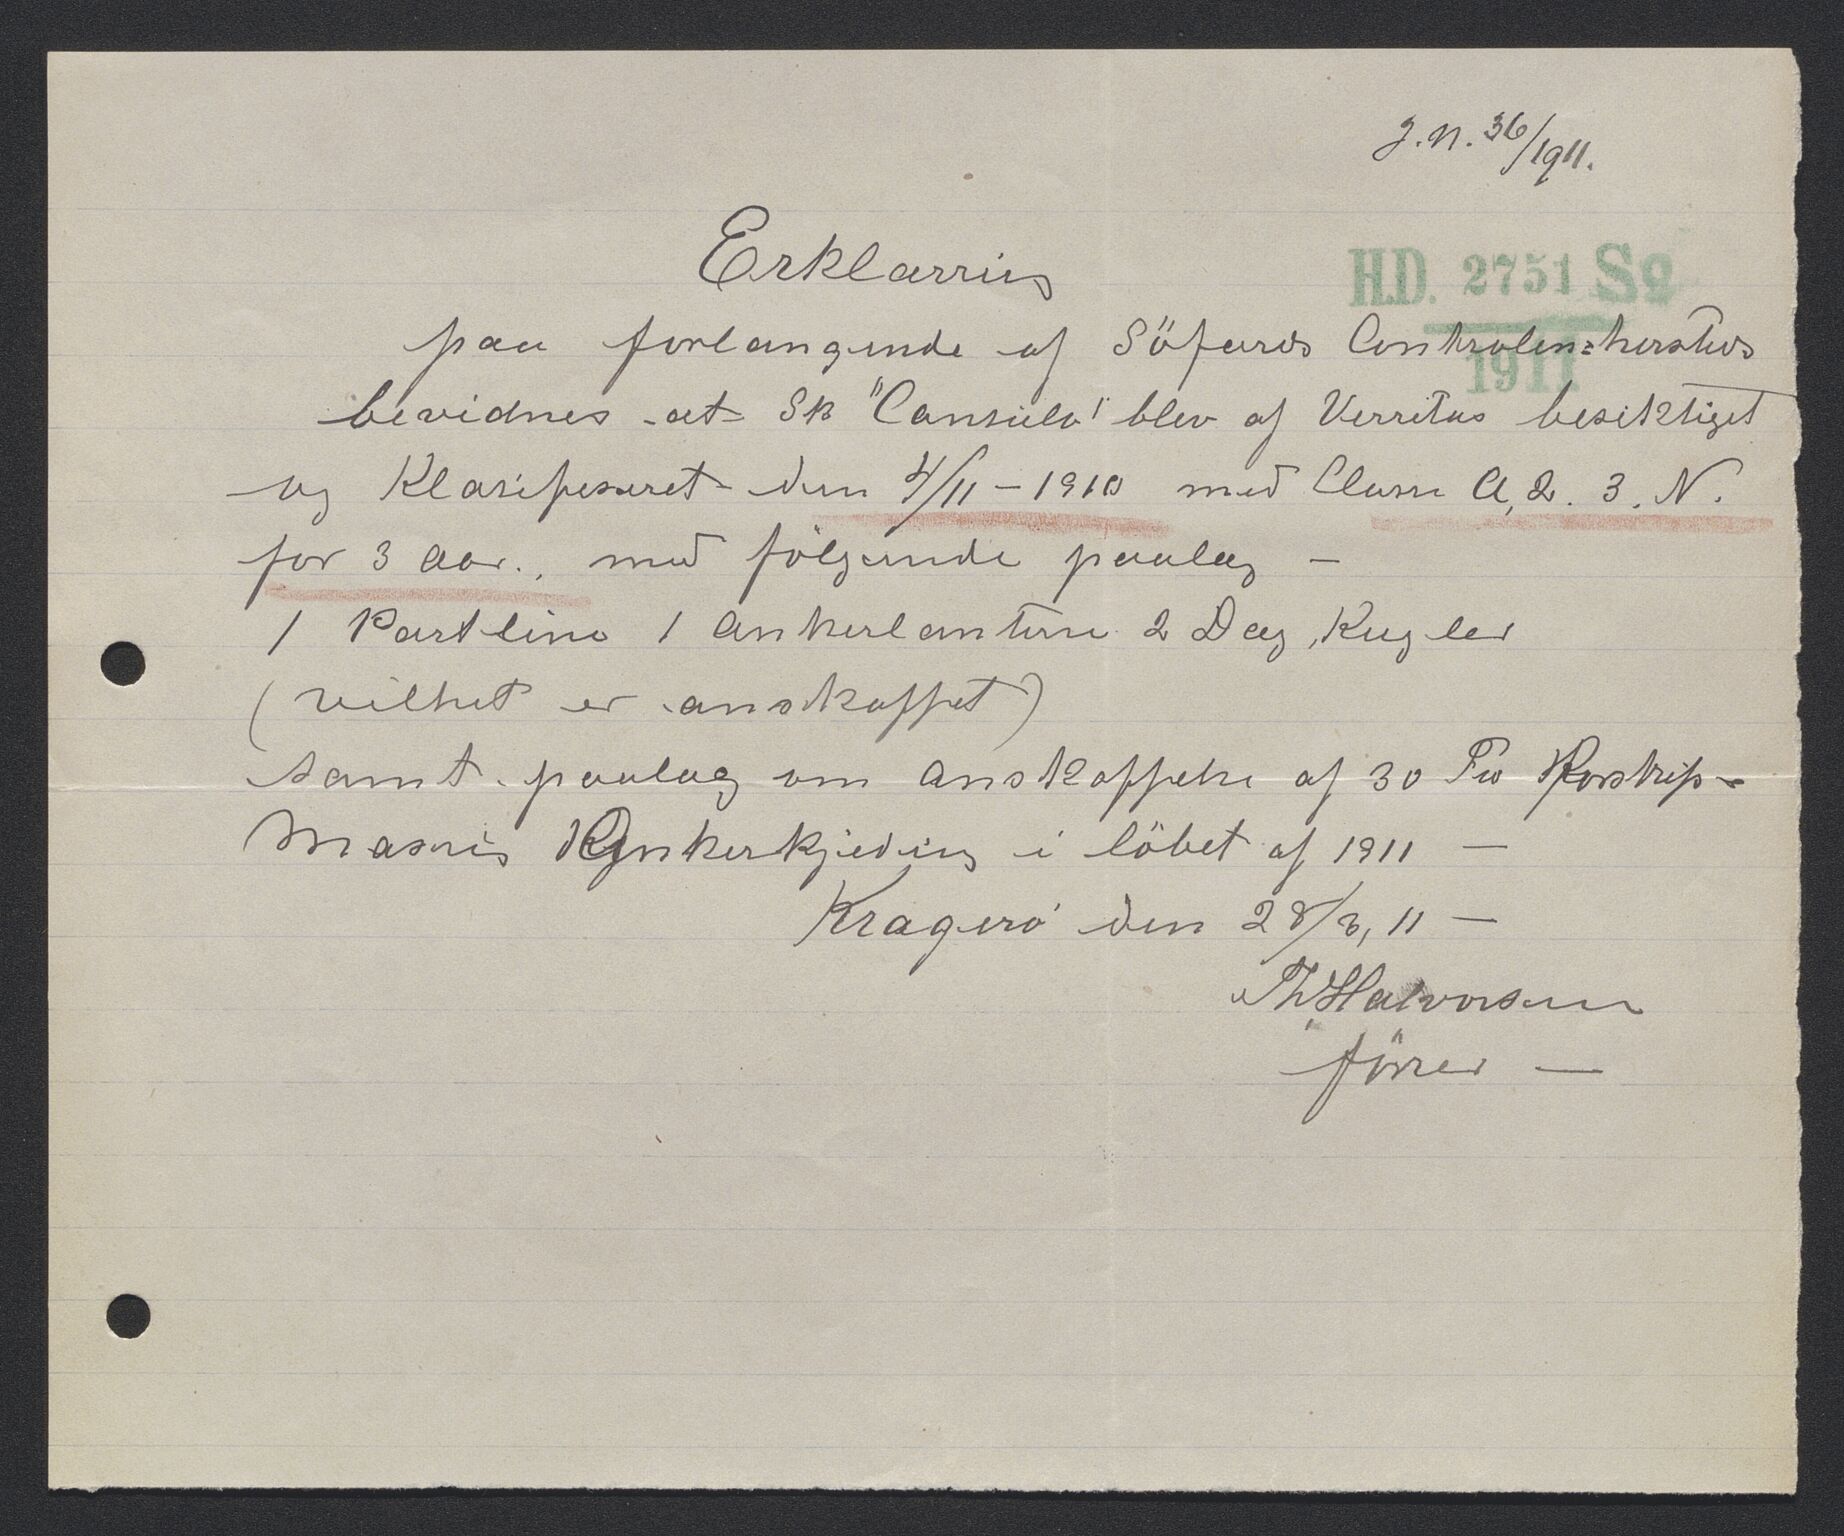 J.N. 36/1911.
Erklærring
H.D. 2751 Sø
1911
paa forlangende af Söfards Controlen: hersteds
bevidnes at Sk "Consulo" blev af Verritas besiktiget
og Klasifeseret den 4/11 - 1910 med Classe A, 2. 3. N.
for 3 Aar., med fölgende paalæg -
1 Partline 1 Ankerlanterne 2 Dag, Kugler
(vilket er anskaffet)
samt paalæg om anskaffelse af 30 Fv
Ankerkjeding i löbet af 1911 -
Kragerö den 28/3, 11 -
Th Halvorsen
förrer -